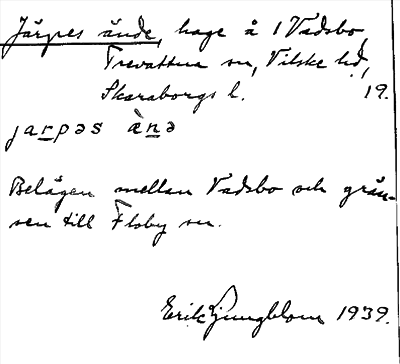 Järpes ände, hage å 1 Vadsbo,
Trevattna sn, Vilske hd,
Skaraborgs l. 19.
jarpəs ànə
Belägen mellan Vadsbo och grän-
sen till Floby sn.
Erik Ljungblom 1939.